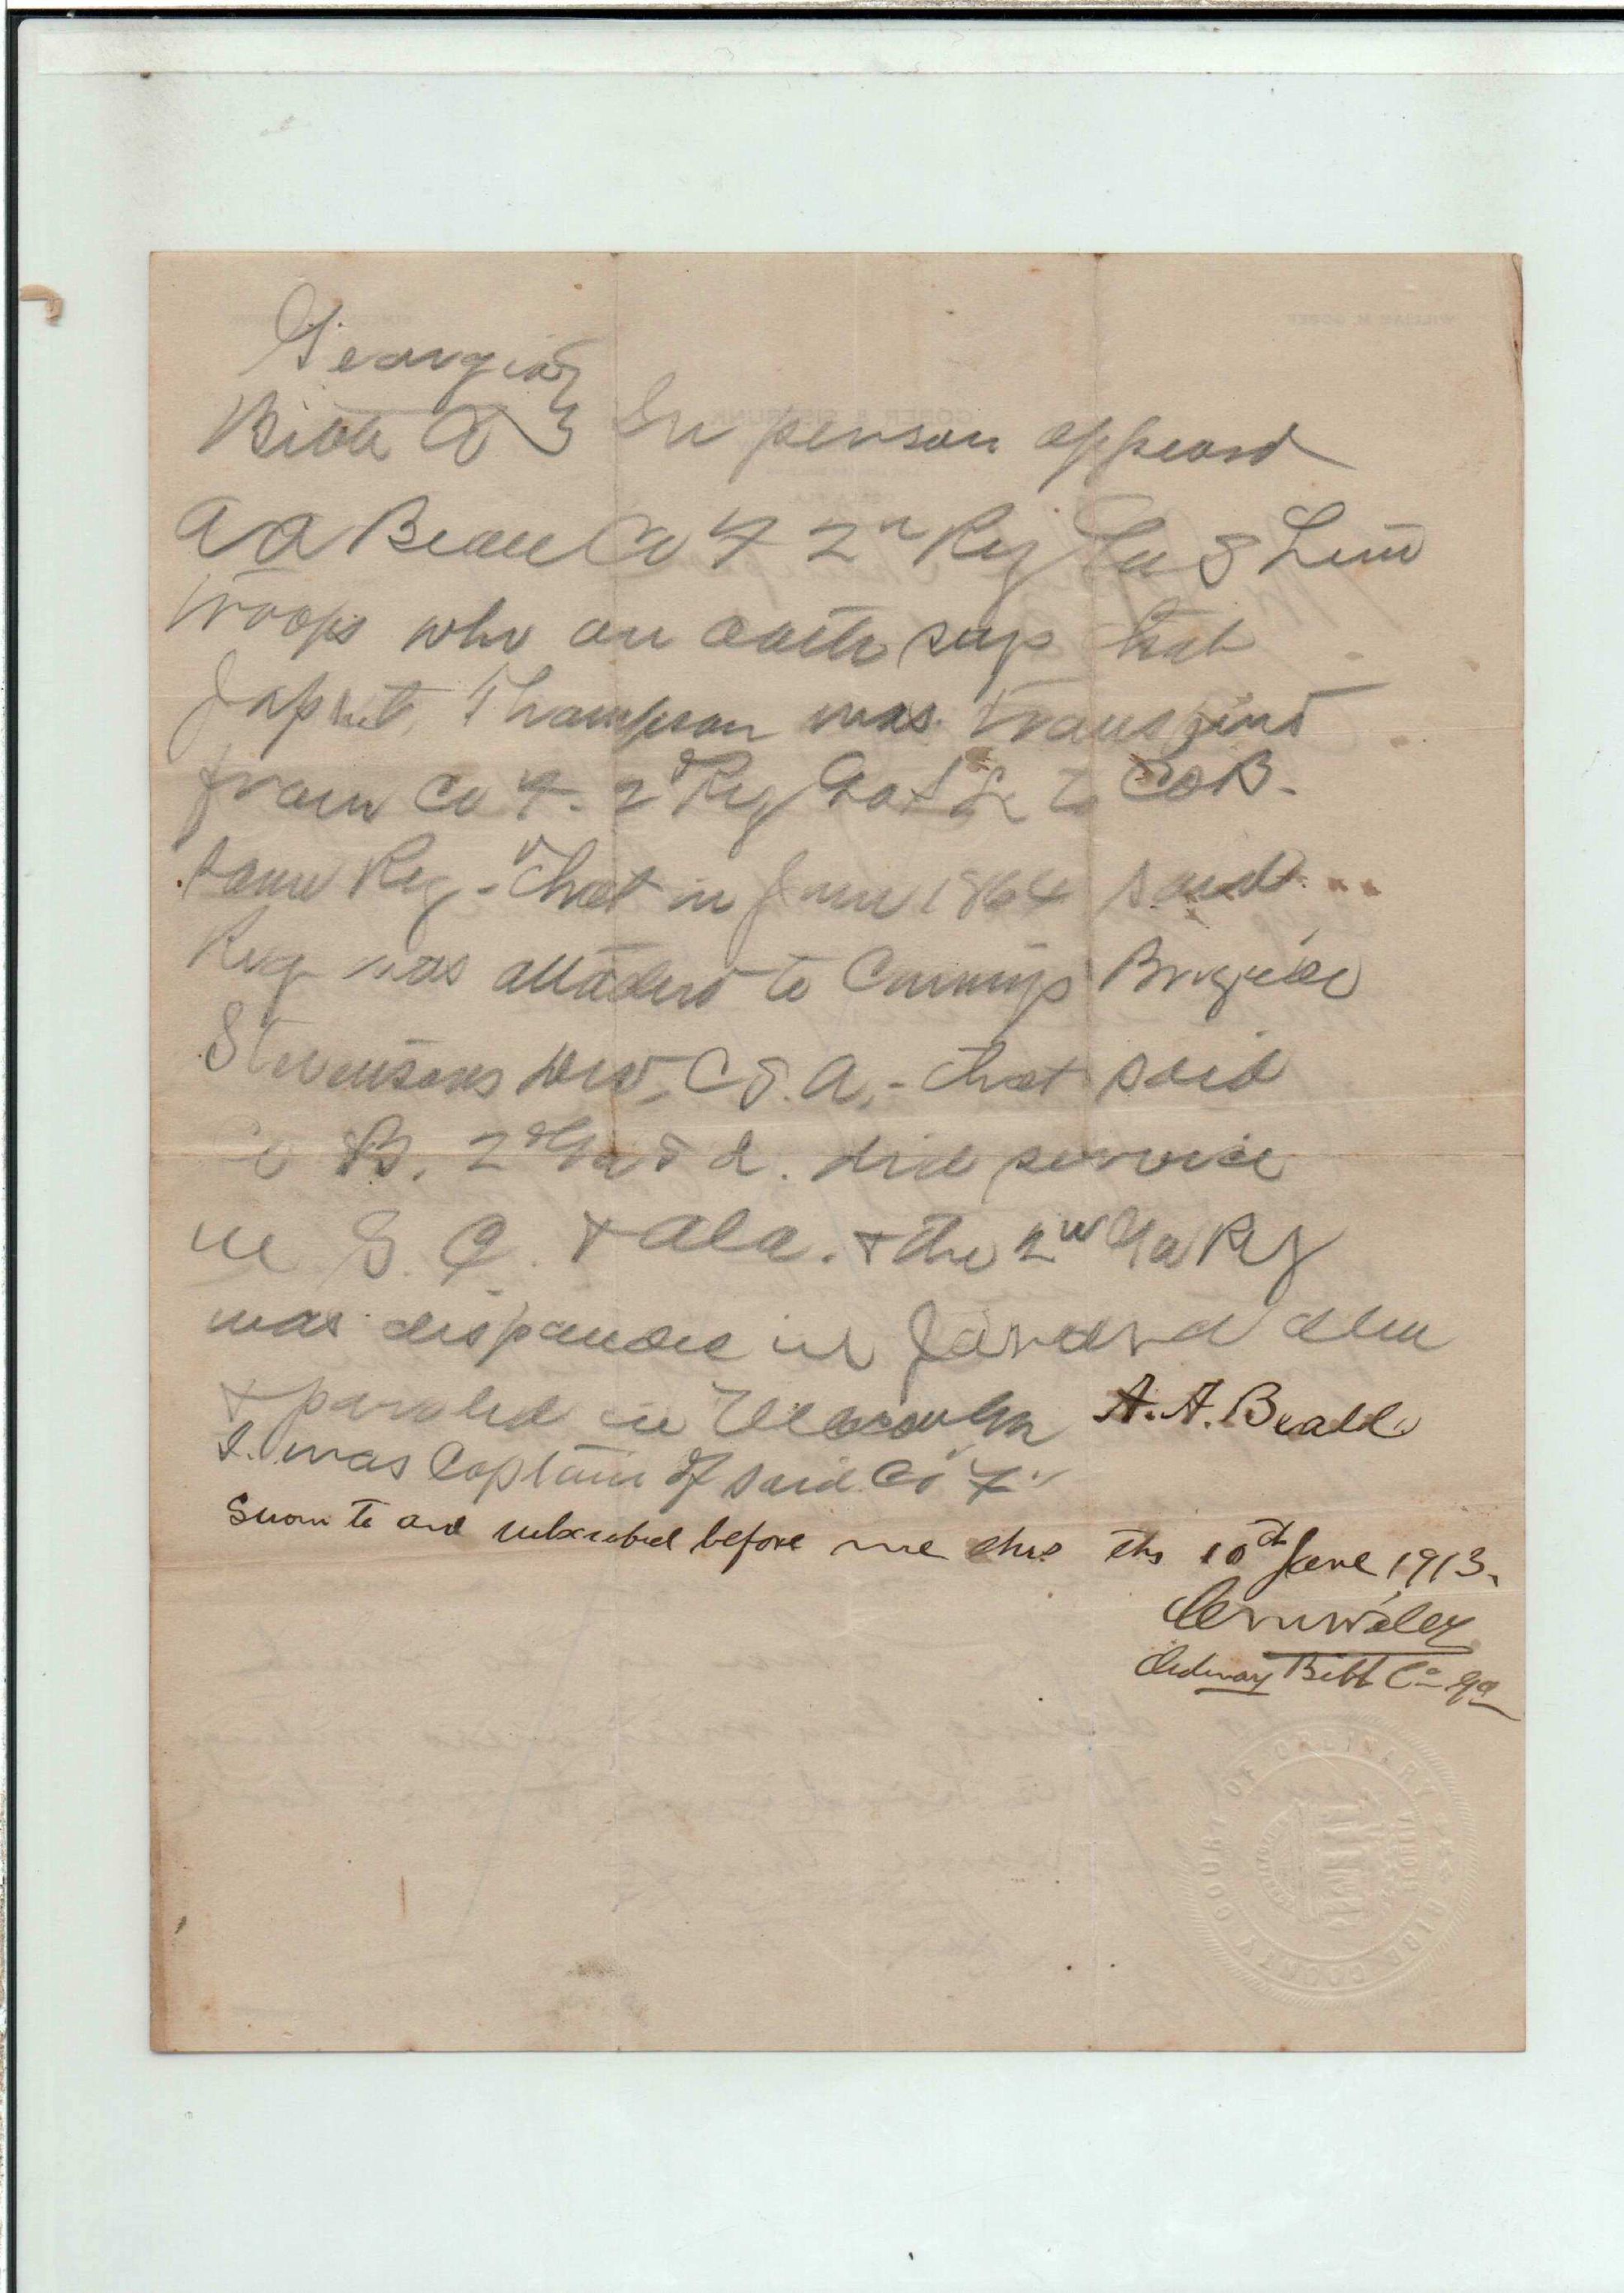 Georgia }
Bibb Co } In person appeard
A A Beall Co F 2n Reg Ga S Line
Troops who on oath says that
Japhet Thompson was transferd
from Co F. 2d Reg Ga S L to Co B.
same Reg - That in June 1864 said
Reg was attached to Cumings Brigade
Stevensons Div, C S. A. - that said
Co B. 2d Ga S L. did service
in S. C. & Ala. & the 2nd Ga Reg
was in
& paroled in A. A. Beall.
I was Captain of said Co "F"
Sworn to and subscribed before me this the 10th June 1913.
Wiley
Ordinary Bibb Co Ga
COURT OF ORDINARY
BIBB COUNTY
GEORGIA